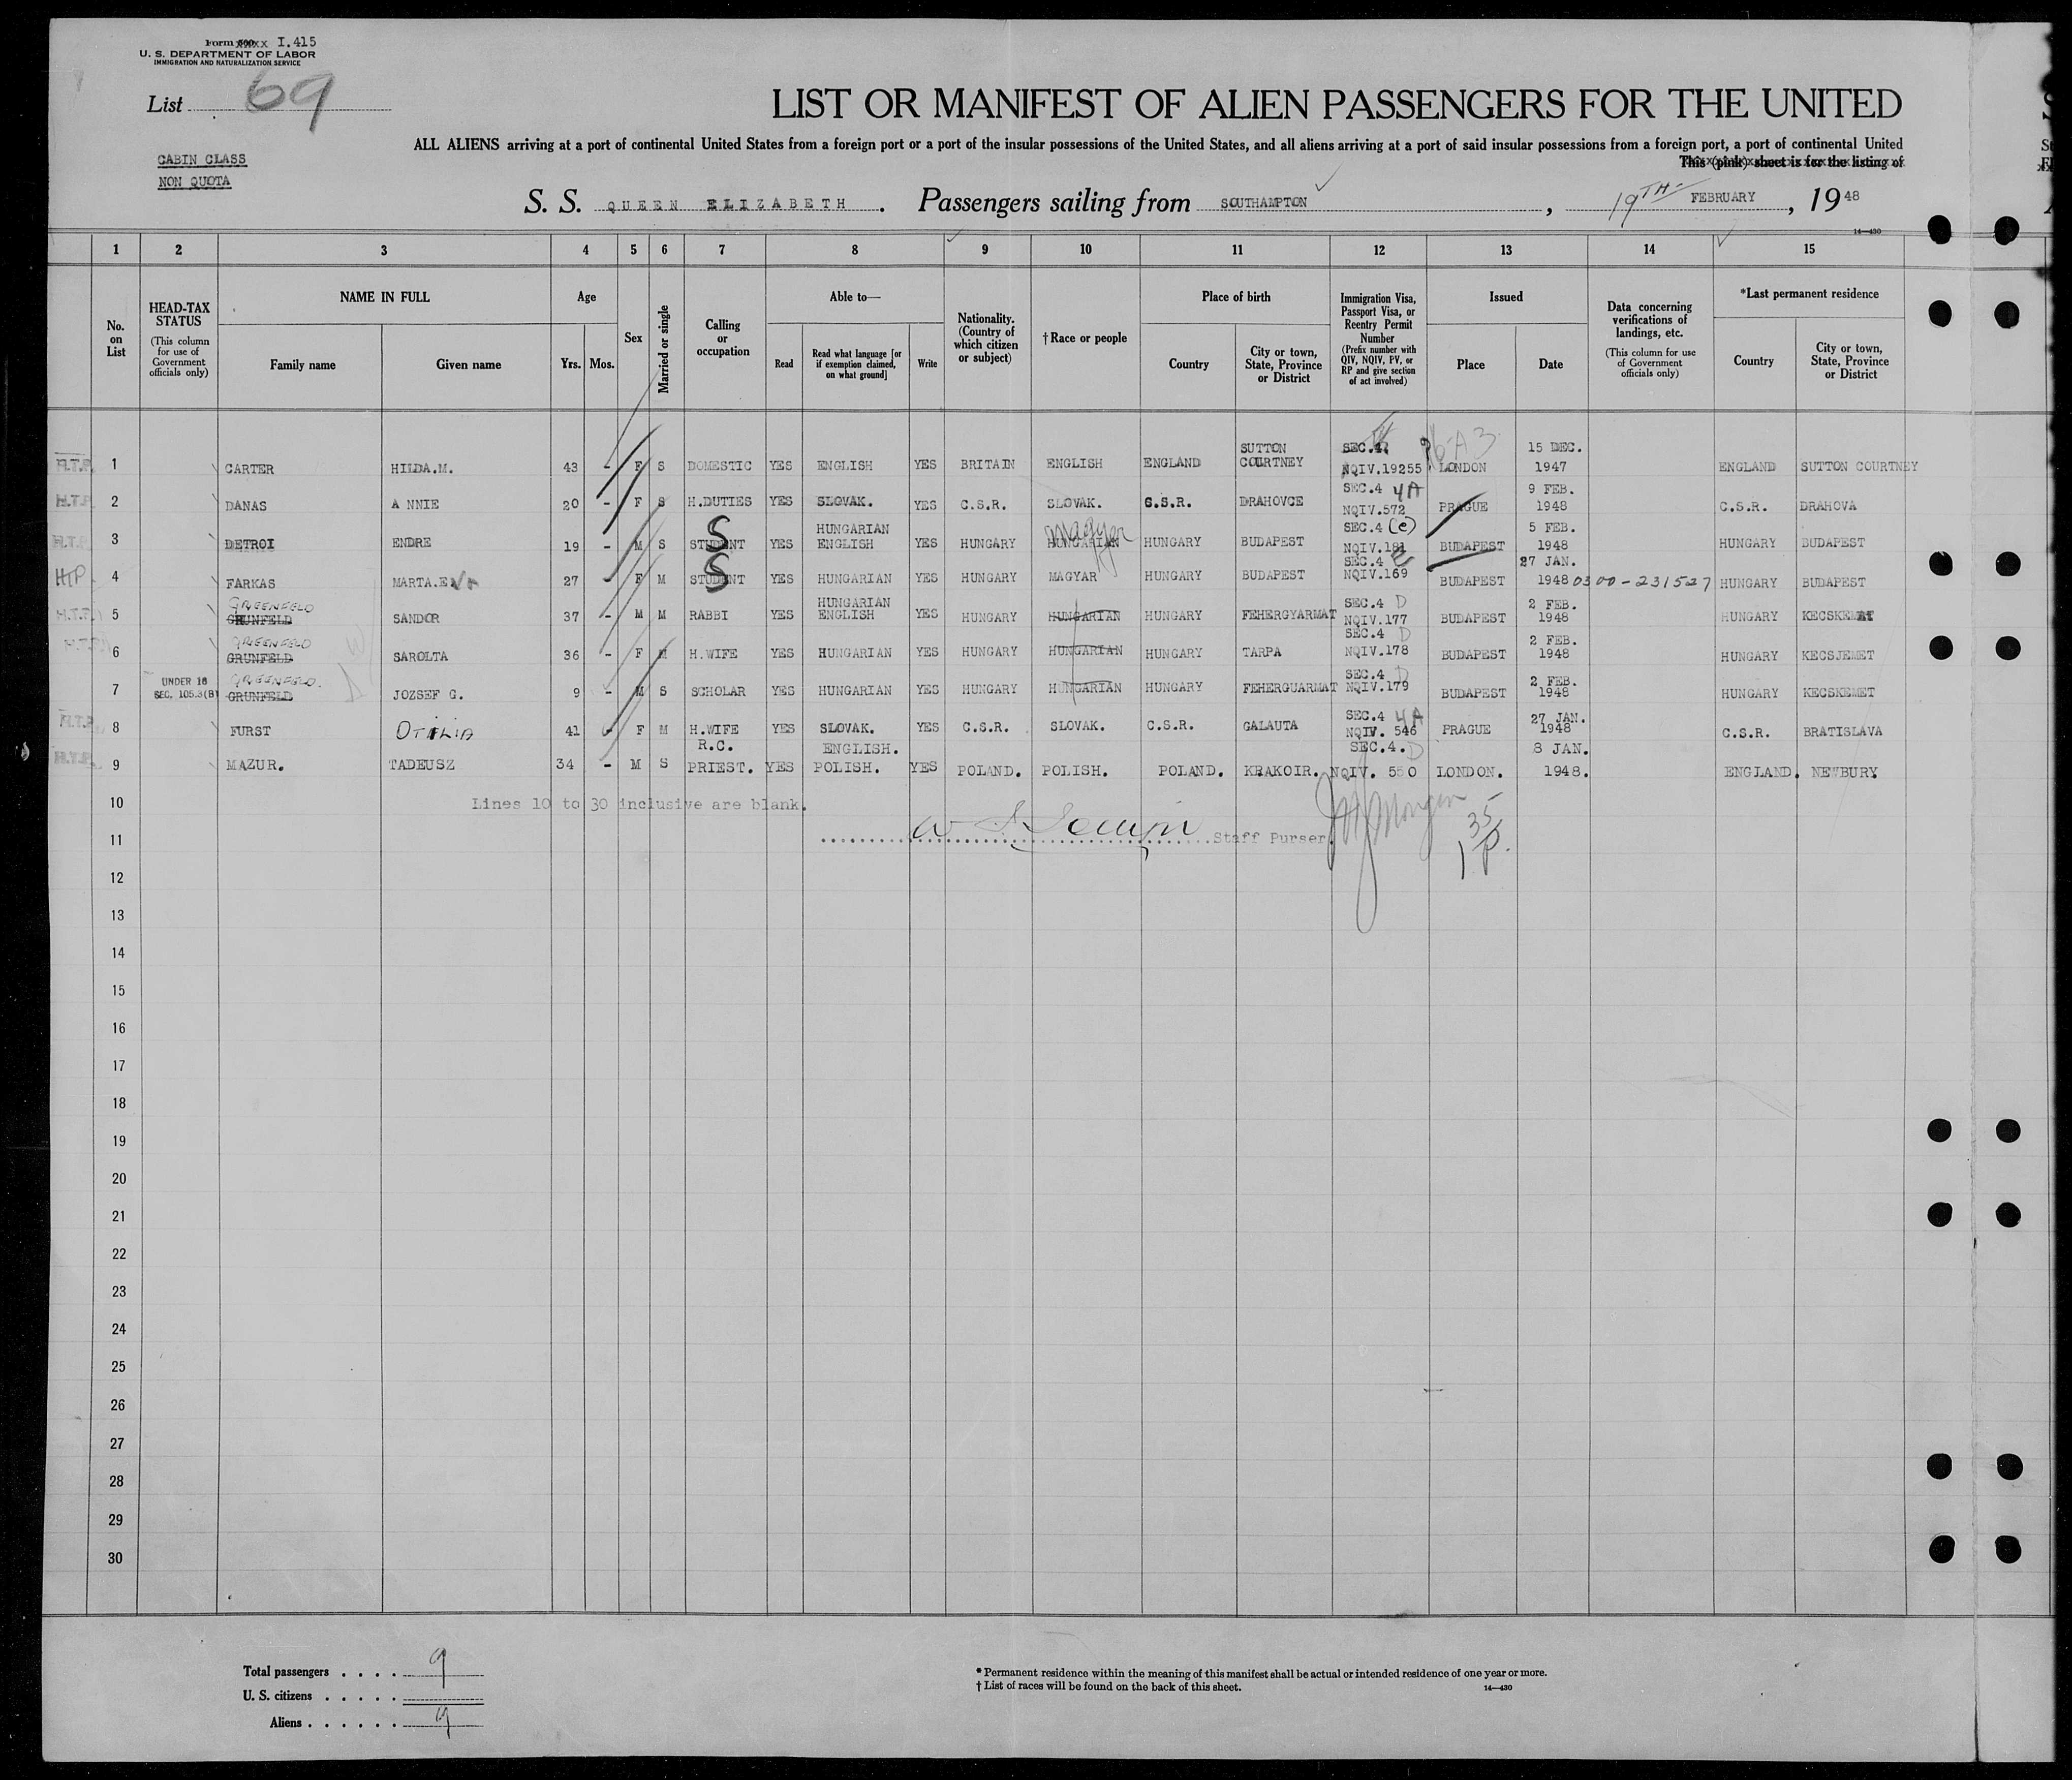 Form I.415
U. S. DEPARTMENT OF LABOR
IMMIGRATION AND NATURALIZATION SERVICE
List 69
CABIN CLASS
NON QUOTA
LIST OR MANIFEST OF ALIEN PASSENGERS FOR THE UNITED
ALL ALIENS arriving at a port of continental United States from a foreign port or a port of the insular possessions of the United States, and all aliens arriving at a port of said insular possessions from a foreign port, a port of continental United
This (pink) sheet is for the listing of
S. S. QUEEN ELIZABETH. Passengers sailing from SOUTHAMPTON, 19TH FEBRUARY, 1948
14—430
1 2 3 4 5 6 7 8 9 10 11 12 13 14 15
No. on List
HEAD-TAX STATUS (This column for use of Government officials only)
NAME IN FULL
Family name Given name
Age
Yrs. Mos.
Sex
Married or single
Calling or occupation
Able to—
Read Read what language [or if exemption claimed, on what ground] Write
Nationality. (Country of which citizen or subject)
† Race or people
Place of birth
Country City or town, State, Province or District
Immigration Visa, Passport Visa, or Reentry Permit Number (Prefix number with QIV, NQIV, PV, or RP and give section of act involved)
Issued
Place Date
Data concerning verifications of landings, etc. (This column for use of Government officials only)
*Last permanent residence
Country City or town, State, Province or District
H.T.P. 1 CARTER HILDA.M. 43 - F S DOMESTIC YES ENGLISH YES BRITAIN ENGLISH ENGLAND SUTTON COURTNEY SEC.4. NQIV.19255 LONDON 15 DEC. 1947 ENGLAND SUTTON COURTNEY
H.T.P. 2 DANAS A NNIE 20 - F S H.DUTIES YES SLOVAK. YES C.S.R. SLOVAK. C.S.R. DRAHOVCE SEC.4 4A NQIV.572 PRAGUE 9 FEB. 1948 C.S.R. DRAHOVA
H.T.P. 3 DETROI ENDRE 19 - M S STUDENT S YES HUNGARIAN ENGLISH YES HUNGARY HUNGARIAN Magyar HUNGARY BUDAPEST SEC.4 (e) NQIV.181 BUDAPEST 5 FEB. 1948 HUNGARY BUDAPEST
HTP 4 FARKAS MARTA.EVA 27 - F M STUDENT S YES HUNGARIAN YES HUNGARY MAGYAR HUNGARY BUDAPEST SEC.4 E NQIV.169 BUDAPEST 27 JAN. 1948 0300-231527 HUNGARY BUDAPEST
H.T.P. 5 GREENFELD GRUNFELD SANDOR 37 - M M RABBI YES HUNGARIAN ENGLISH YES HUNGARY HUNGARIAN HUNGARY FEHERGYARMAT SEC.4 D NQIV.177 BUDAPEST 2 FEB. 1948 HUNGARY KECSKEMET
H.T.P. 6 GREENFELD GRUNFELD SAROLTA 36 - F M H.WIFE YES HUNGARIAN YES HUNGARY HUNGARIAN HUNGARY TARPA SEC.4 D NQIV.178 BUDAPEST 2 FEB. 1948 HUNGARY KECSJEMET
7 UNDER 16 SEC. 105.3(B) GREENFELD. GRUNFELD JOZSEF G. 9 - M S SCHOLAR YES HUNGARIAN YES HUNGARY HUNGARIAN HUNGARY FEHERGUARMAT SEC.4 D NQIV.179 BUDAPEST 2 FEB. 1948 HUNGARY KECSKEMET
H.T.P. 8 FURST OTILIA 41 - F M H.WIFE YES SLOVAK. YES C.S.R. SLOVAK. C.S.R. GALAUTA SEC.4 4A NQIV. 546 PRAGUE 27 JAN. 1948 C.S.R. BRATISLAVA
H.T.P. 9 MAZUR. TADEUSZ 34 - M S R.C. PRIEST. YES ENGLISH. POLISH. YES POLAND. POLISH. POLAND. KRAKOIR. SEC.4. D NQIV. 550 LONDON. 8 JAN. 1948. ENGLAND. NEWBURY.
10 Lines 10 to 30 inclusive are blank.
11 Staff Purser.
12
13
14
15
16
17
18
19
20
21
22
23
24
25
26
27
28
29
30
Total passengers . . . . 9
U. S. citizens . . . . .
Aliens . . . . . . 9
* Permanent residence within the meaning of this manifest shall be actual or intended residence of one year or more.
† List of races will be found on the back of this sheet.
14—430